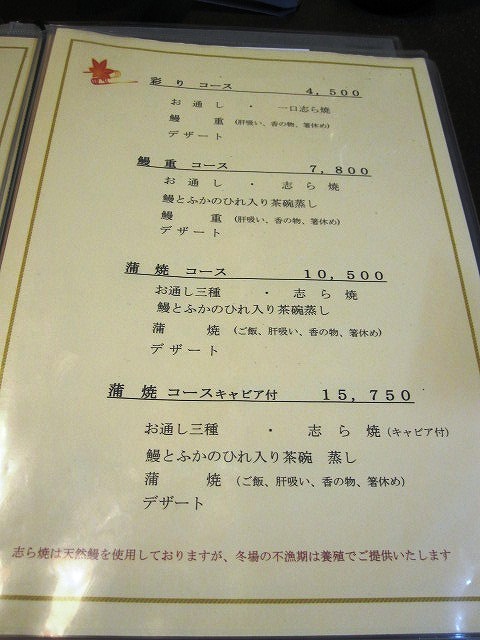 彩り コース 4,500
お通し ・ 一口志ら焼
鰻 重 (肝吸い、香の物、箸休め)
デザート
鰻 重 コース 7,800
お 通 し ・ 志 ら 焼
鰻とふかのひれ入り茶碗蒸し
鰻 重 (肝吸い、香の物、箸休め)
デザート
蒲 焼 コース 10,500
お通し三種 ・ 志 ら 焼
鰻とふかのひれ入り茶碗蒸し
蒲 焼 (ご飯、肝吸い、香の物、箸休め)
デザート
蒲 焼 コースキャビア付 15,750
お通し三種 ・ 志 ら 焼 (キャビア付)
鰻とふかのひれ入り茶碗 蒸し
蒲 焼 (ご飯、肝吸い、香の物、箸休め)
デザート
志ら焼は天然鰻を使用しておりますが、冬場の不漁期は養殖でご提供いたします